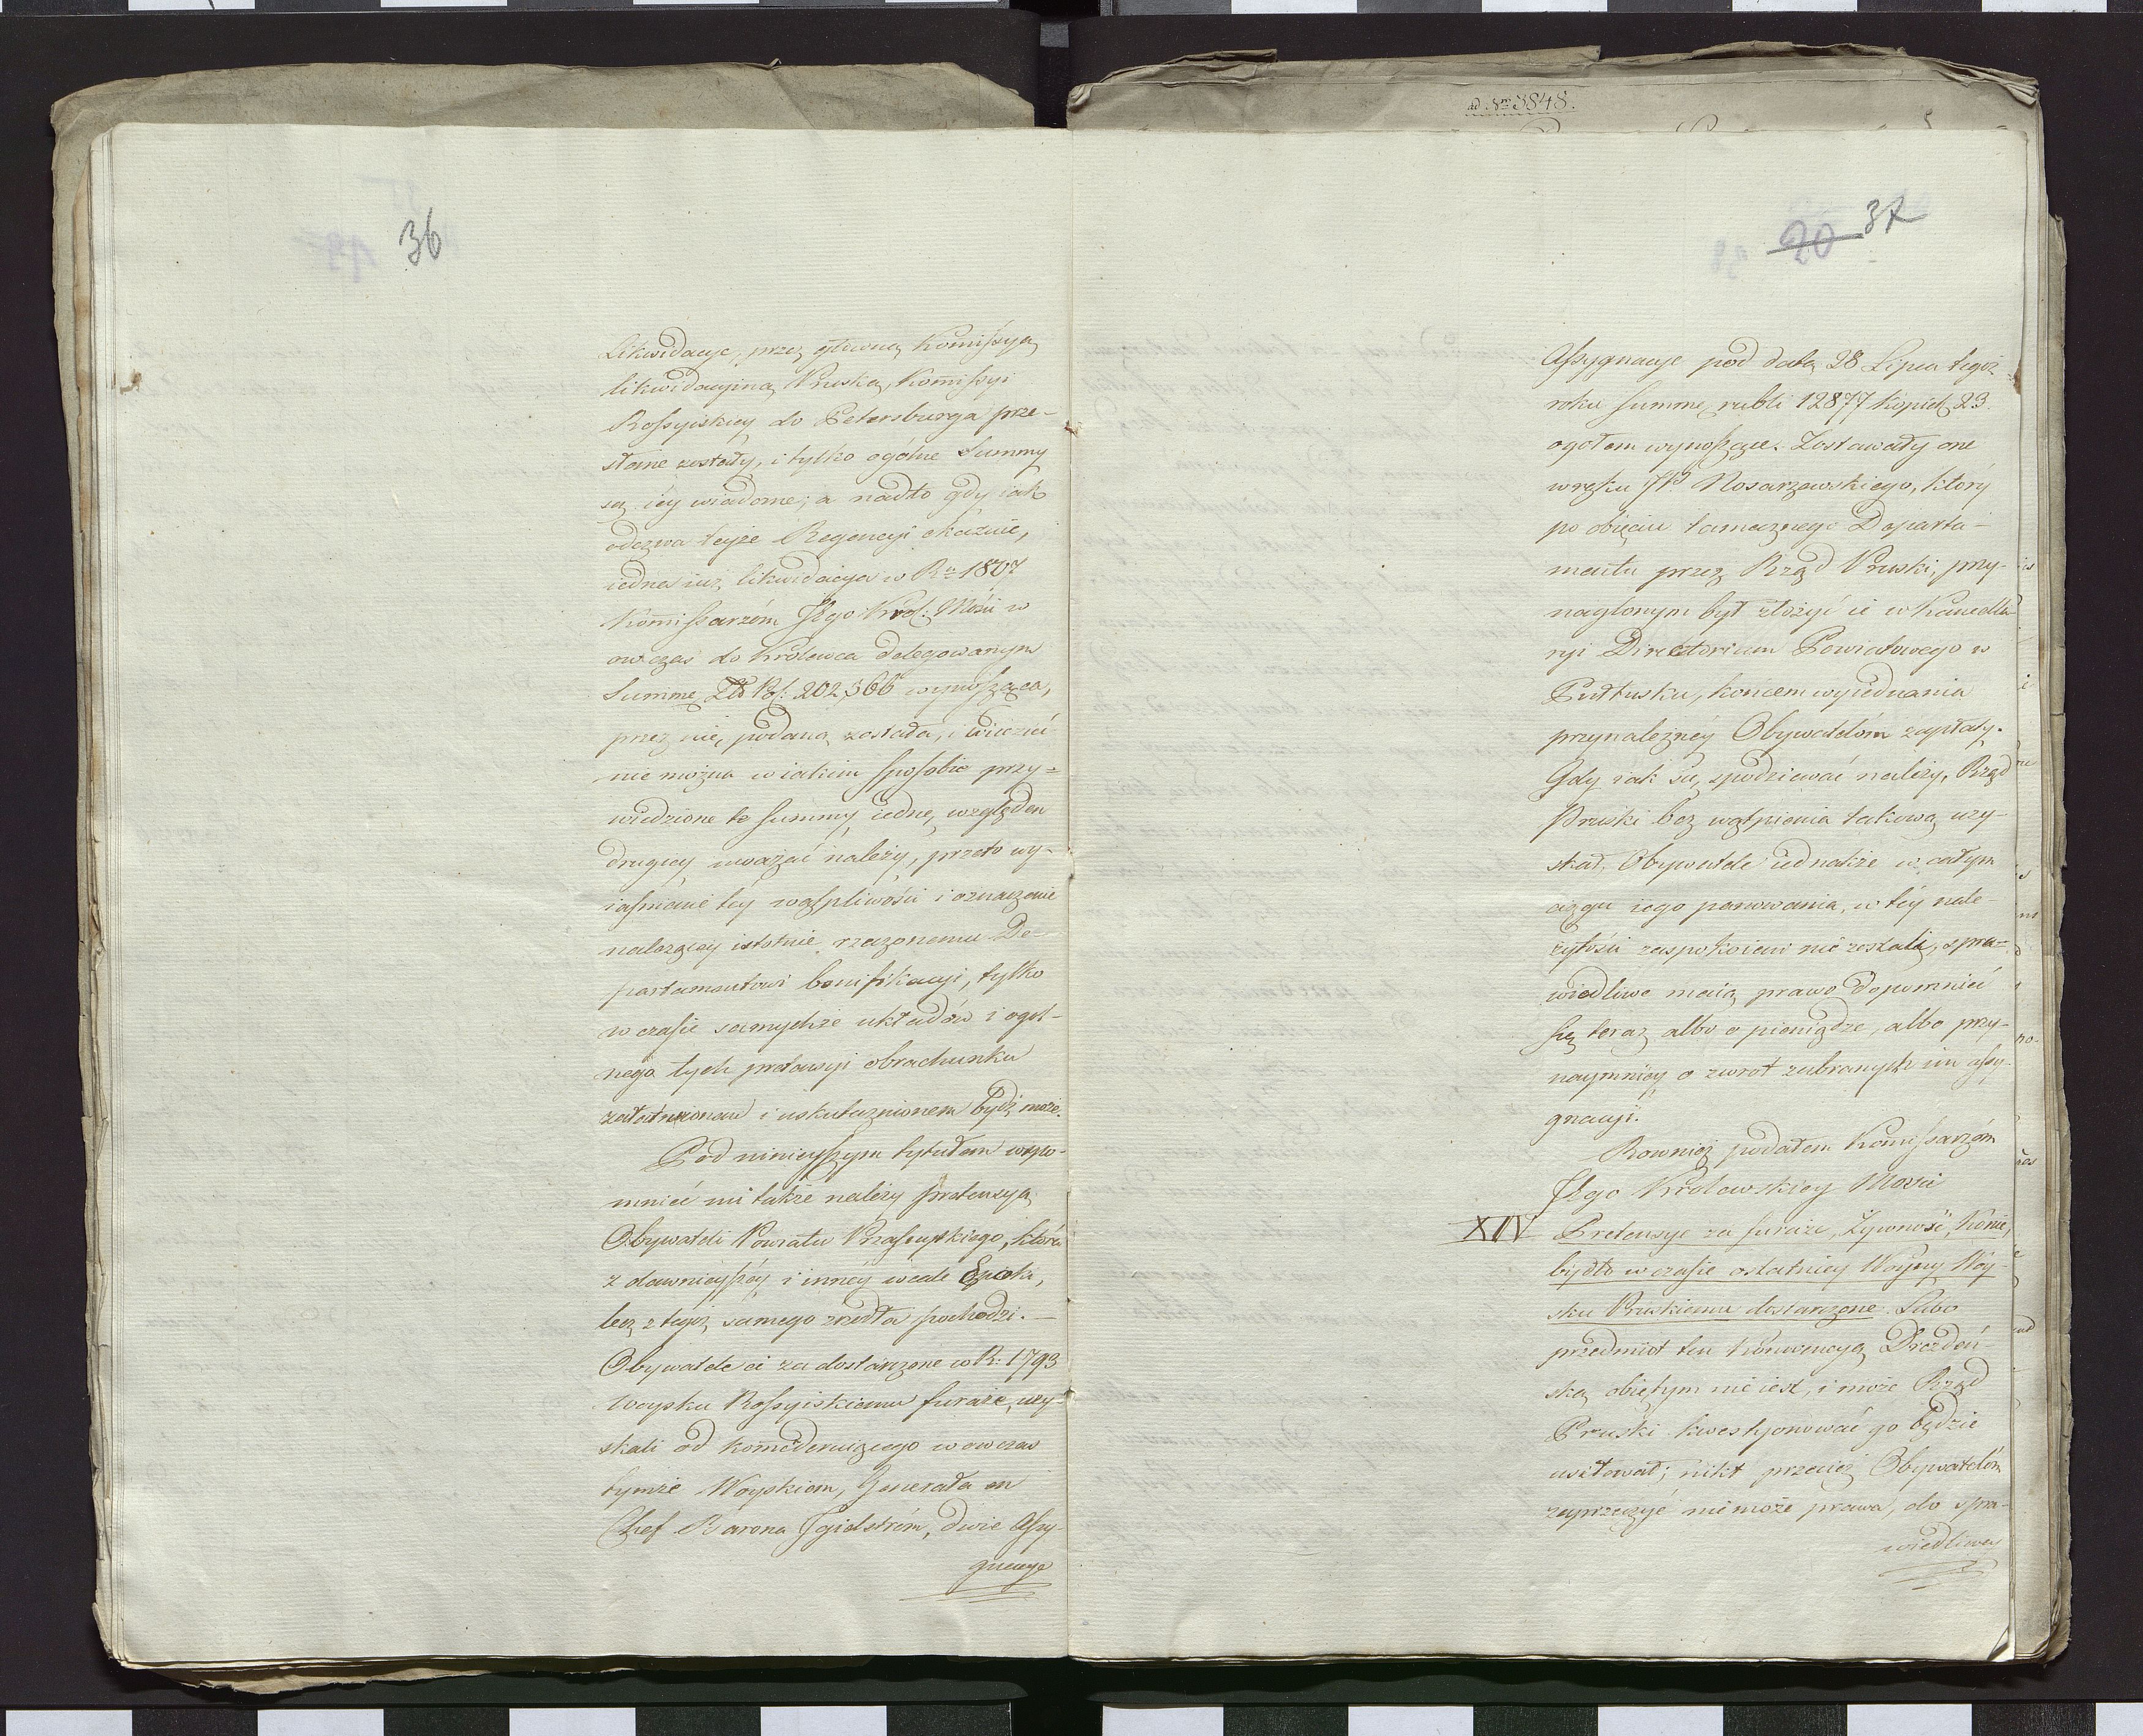 36
Likwidacye, przez główną Komissyą
likwidacyiną Pruską, Kom̃issyi
Rossyiskiey do Petersburga prze-
słane zostały, i tylko ogólne Summy
są iey wiadome; a nadto gdy iak
odezwa teyże Regencyi okazuie,
iedna iuż likwidacya w Ru 1807
Kom̃issarzóm JKgo Krol: Mści w
owczas do Królewca delegowanym
Summę Zł Pol: 202,366 wynosząca,
przez nię podaną została, i wiedzieć
nie można w iakim sposobie przy-
wiedzione te summy iedne, względem
drugiey uważać należy, przeto wy-
iaśnienie tey wątpliwości i oznaczenie
należącey istotnie rzeczonemu De-
partamentowi bonifikacyi, tylko
w czasie samychże układów i ogól-
nego tych pretensyi obrachunku
załatwionem i uskutecznionem bydź może.
Pod ninieyszym tytułem wspo-
mnieć mi także należy pretensyą
Obywateli Powiatu Przasnyskiego, która
z dawnieyszey i inney wcale Epoki,
lecz z tegoż samego źrzódła pochodzi. —
Obywatele ci za dostarczone w R: 1793
woysku Rossyiskiemu furaże, uzy-
skali od kom̃enderuiącego w owczas
tymże Woyskiem, Generała en
Chef Barona Jgielström, dwie Assy-
gnacye
ad Nrm 3848.
20 37
Assygnacye pod datą 28 Lipca tegoż
roku summę rubli 12877 kopiek 23.
ogołem wynoszące. Zostawały one
w ręku JP. Nosarzewskiego, który
po obięciu tamecznego Departa-
mentu przez Rząd Pruski, przy-
naglonym był złożyć ie w Kancella-
ryi Directorium Powiatowego w
Pułtusku, końcem wyiednania
przynależney Obywatelóm zapłaty.
Gdy iak się spodziewać należy, Rząd
Pruski bez wątpienia takową uzy-
skał, Obywatele iednakże w całym
ciągu iego panowania, w tey nale-
żytości zaspokoieni nie zostali, spra-
wiedliwe maią prawo dopomnieć
się teraz albo o pieniądze, albo przy-
naymniey o zwrot zabranych im assy-
gnacyi.
Rownież podałem Kom̃issarzóm
JKgo Królewskiey Mości
XIV Pretensye za furaże, Żywność, Konie,
bydło w czasie ostatniey Woyny Woy-
sku Pruskiemu dostarczone. Lubo
przedmiot ten Konwencyą Drezdeń-
ską obiętym nie iest, i może Rząd
Pruski kwestyonować go będzie
usiłował; nikt przecież Obywatelóm
zaprzeczyć nie może prawa, do spra-
wiedliwey